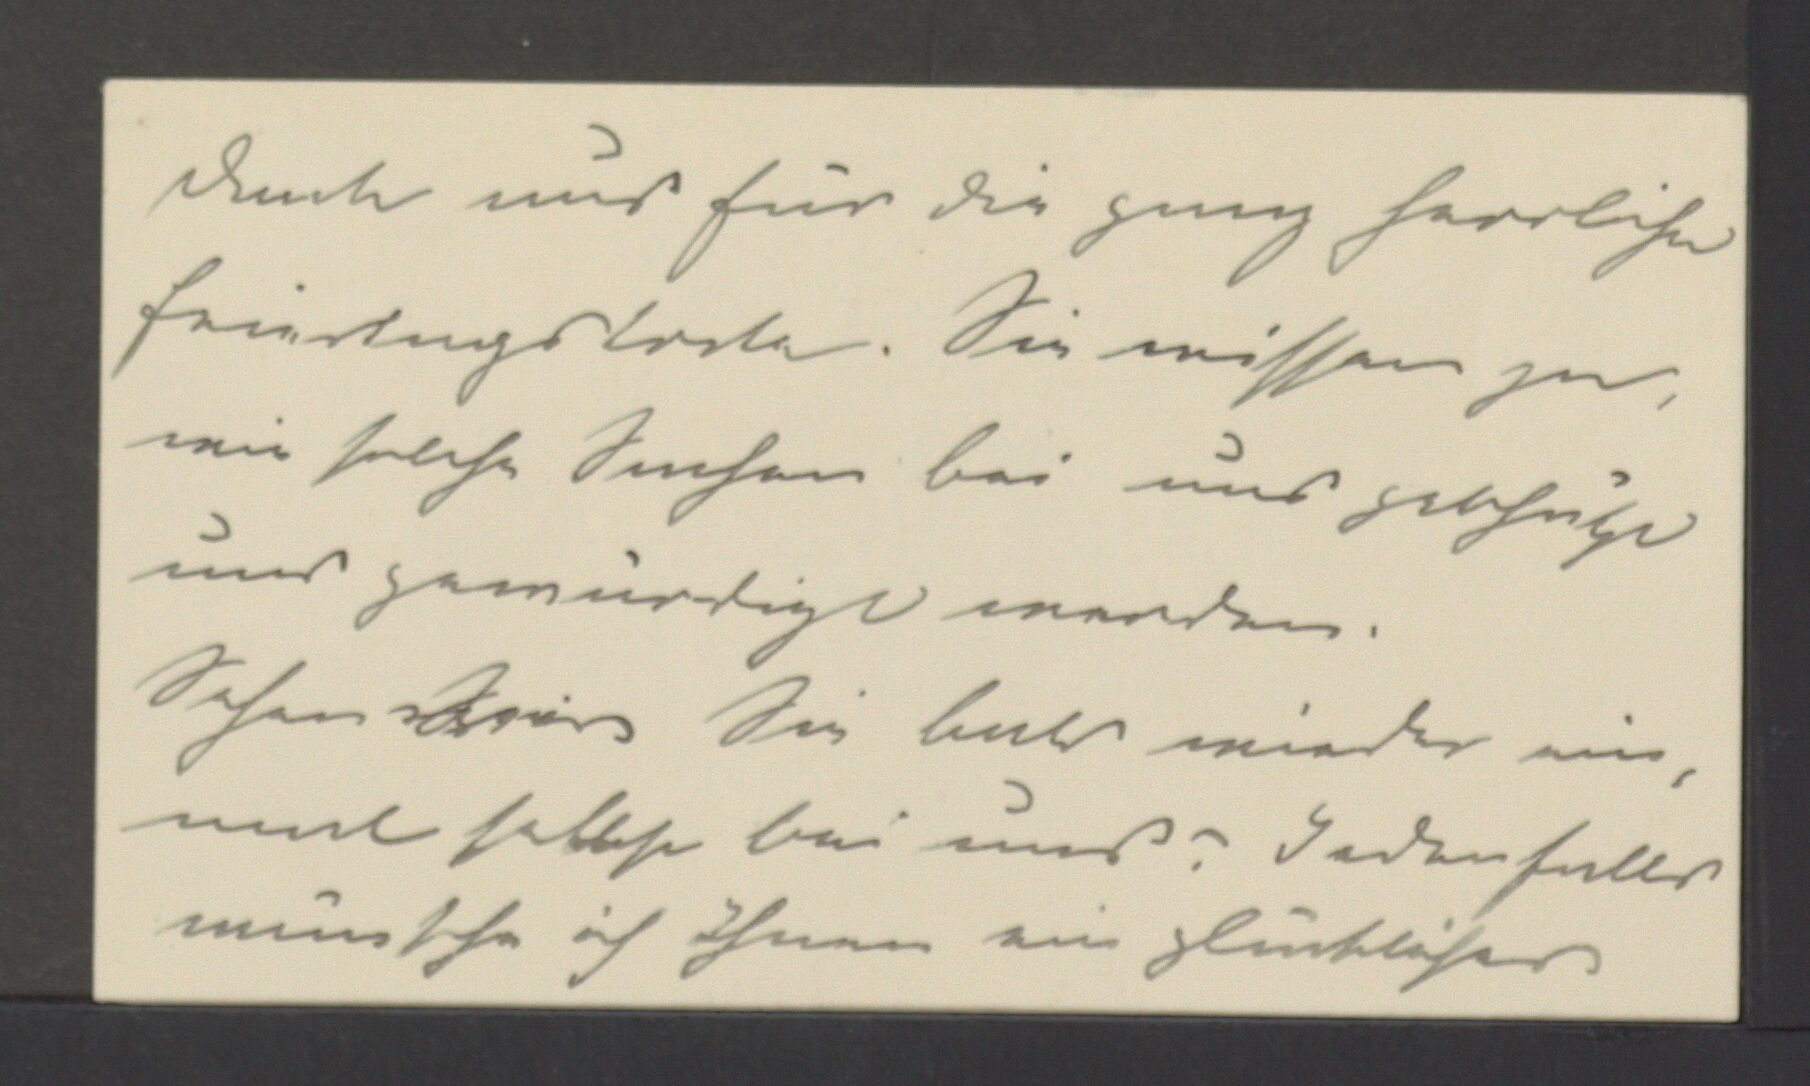 Dank und für die ganz herrliche
Feiertagstorte. Sie wissen ja,
wie solche Sachen bei uns geschätzt
und gewürdigt werden.
Sehen wir Sie bald wieder ein-
mal selbst bei uns? Jedenfalls
wünsche ich Ihnen ein glückliches